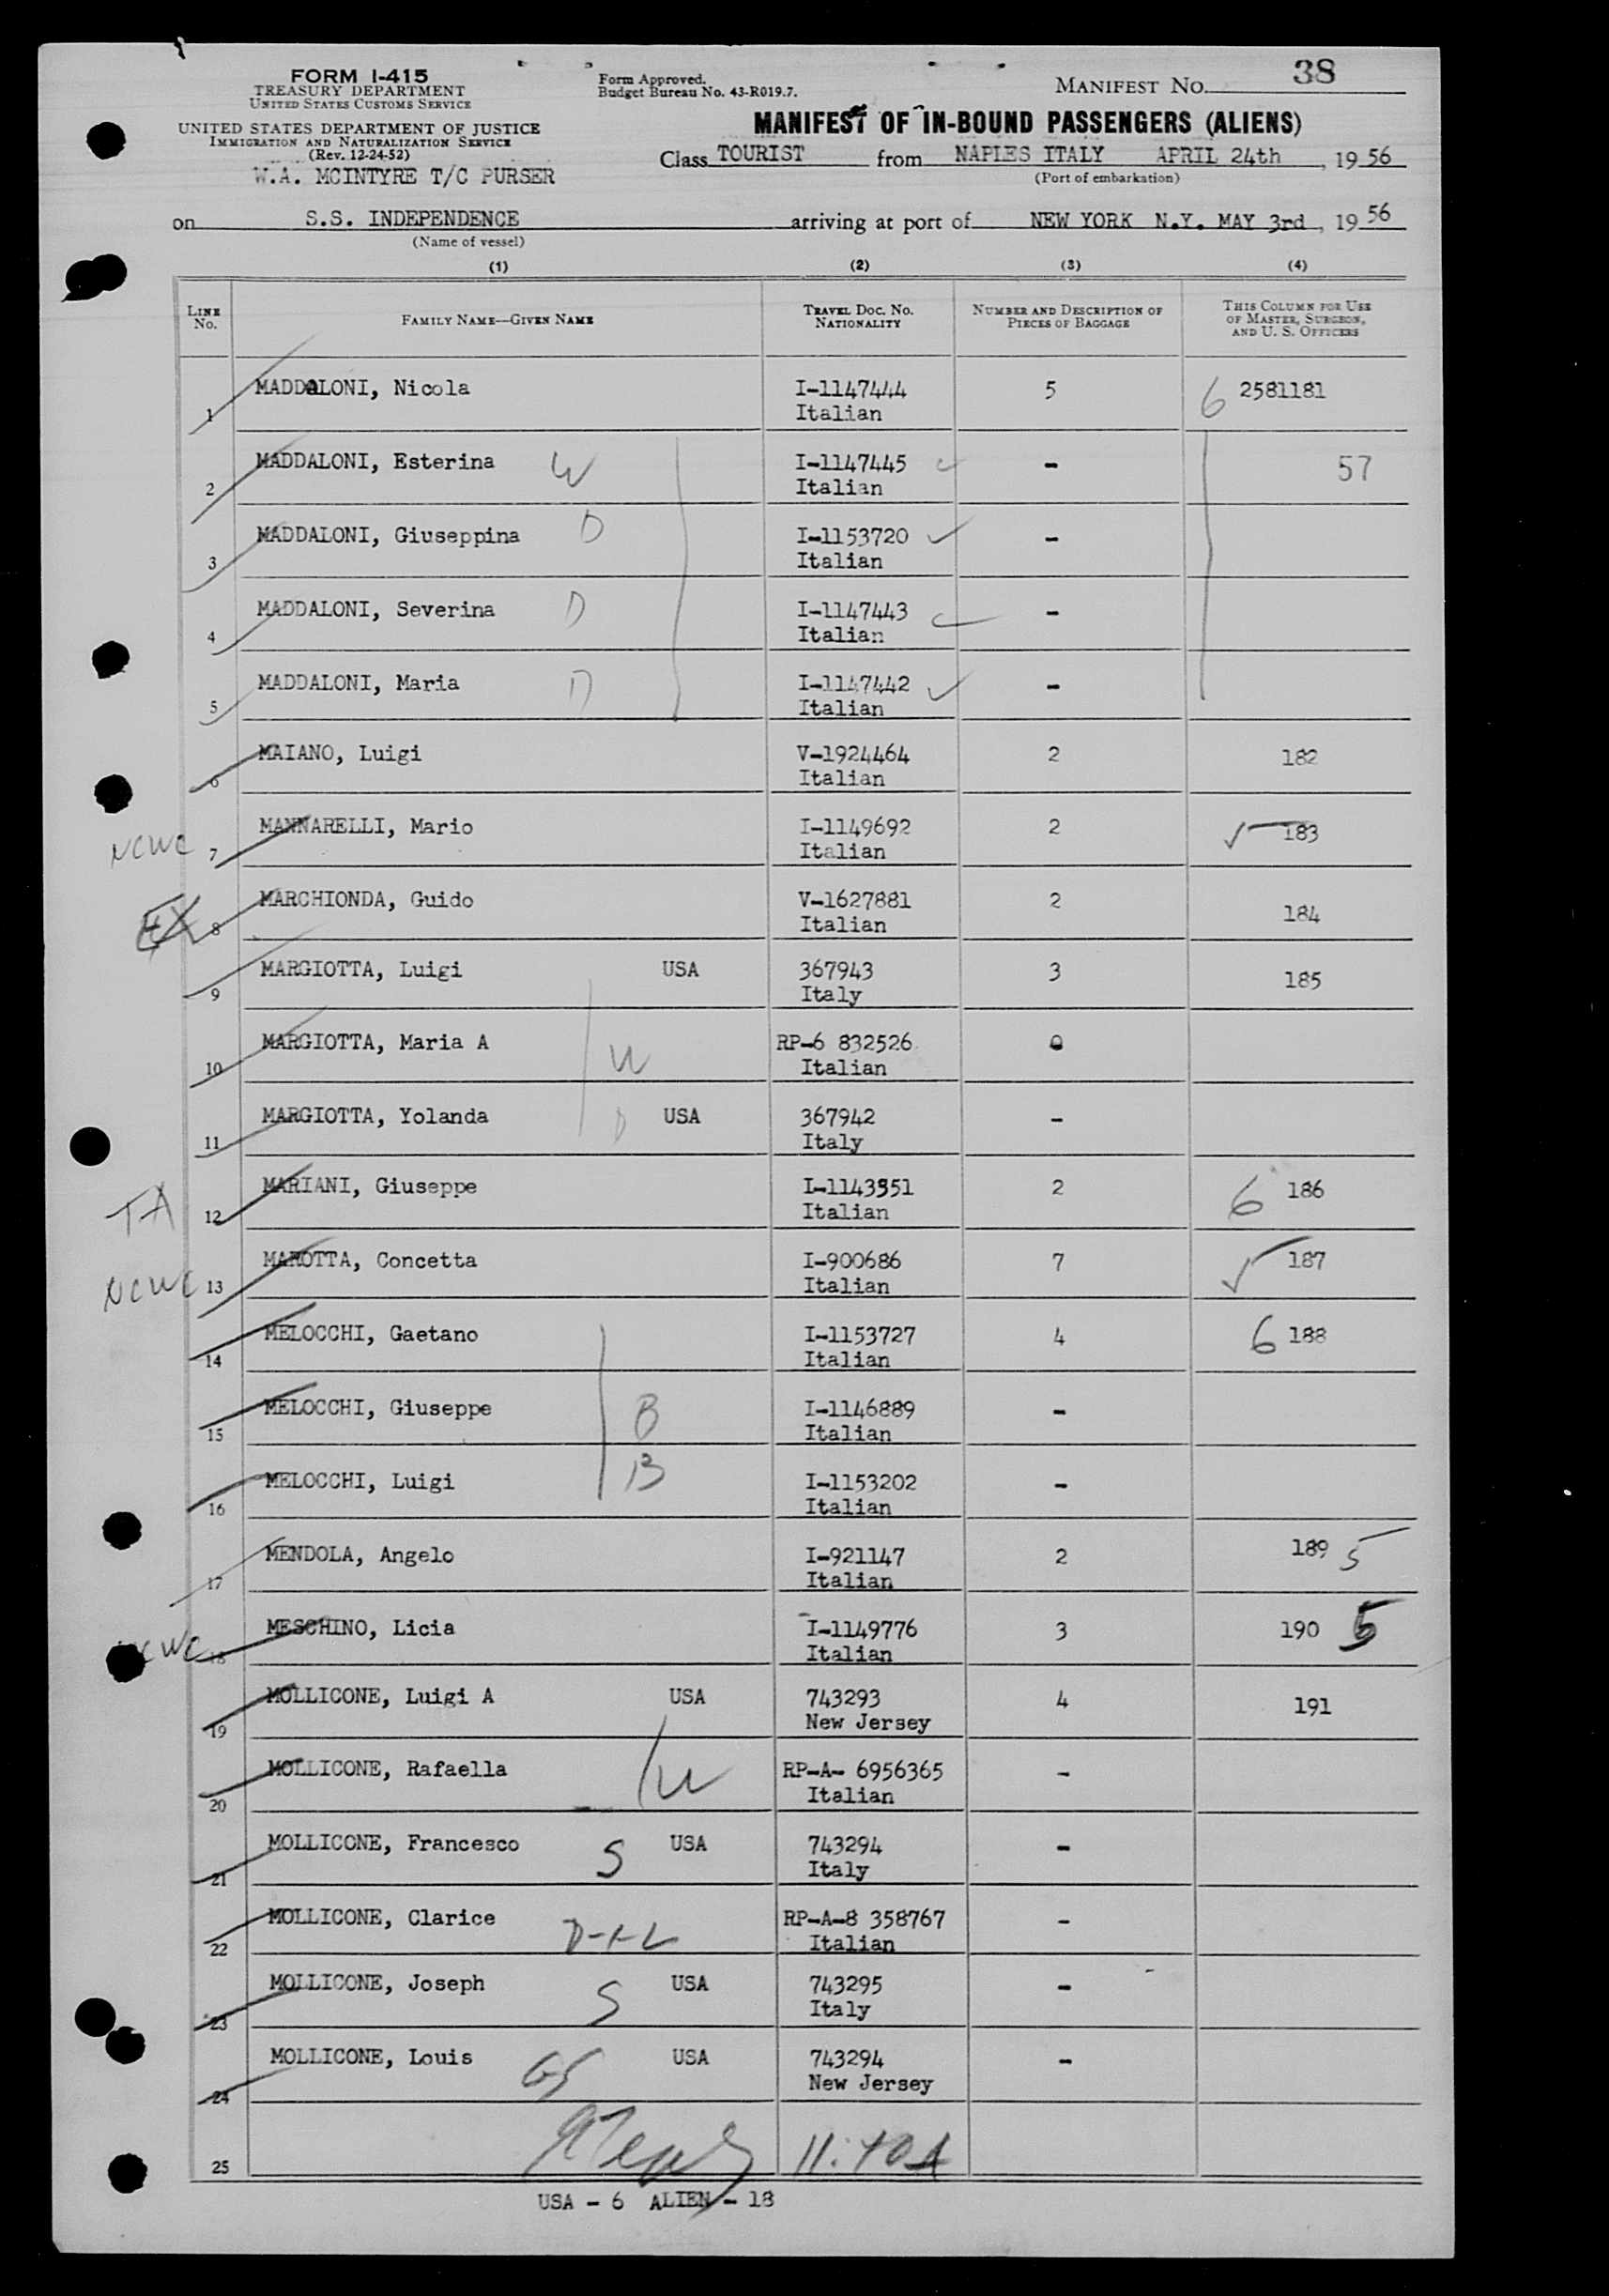 FORM I-415
TREASURY DEPARTMENT
UNITED STATES CUSTOMS SERVICE
UNITED STATES DEPARTMENT OF JUSTICE
IMMIGRATION AND NATURALIZATION SERVICE
(Rev. 12-24-52)
W.A. MCINTYRE T/C PURSER
Form Approved.
Budget Bureau No. 43-R019.7.
MANIFEST NO. 38
MANIFEST OF IN-BOUND PASSENGERS (ALIENS)
Class TOURIST from NAPLES ITALY APRIL 24th, 1956
(Port of embarkation)
on S.S. INDEPENDENCE arriving at port of NEW YORK N.Y. MAY 3rd, 1956
(Name of vessel)
(1) (2) (3) (4)
LINE No. FAMILY NAME—GIVEN NAME TRAVEL DOC. NO. NATIONALITY NUMBER AND DESCRIPTION OF PIECES OF BAGGAGE THIS COLUMN FOR USE OF MASTER, SURGEON, AND U. S. OFFICERS
1 MADDALONI, Nicola I-1147444 5 6 2581181
Italian
2 MADDALONI, Esterina W I-1147445 - 57
Italian
3 MADDALONI, Giuseppina D I-1153720 ✓ -
Italian
4 MADDALONI, Severina D I-1147443 ✓ -
Italian
5 MADDALONI, Maria D I-1147442 ✓ -
Italian
6 MAIANO, Luigi V-1924464 2 182
Italian
NCWC 7 MANNARELLI, Mario I-1149692 2 ✓ 183
Italian
EX 8 MARCHIONDA, Guido V-1627881 2 184
Italian
9 MARGIOTTA, Luigi USA 367943 3 185
Italy
10 MARGIOTTA, Maria A W RP-6 832526 0
Italian
11 MARGIOTTA, Yolanda D USA 367942 -
Italy
TA 12 MARIANI, Giuseppe I-1143351 2 6 186
Italian
NCWC 13 MAROTTA, Concetta I-900686 7 ✓ 187
Italian
14 MELOCCHI, Gaetano I-1153727 4 6 188
Italian
15 MELOCCHI, Giuseppe B I-1146889 -
Italian
16 MELOCCHI, Luigi B I-1153202 -
Italian
17 MENDOLA, Angelo I-921147 2 189 5
Italian
NCWC 18 MESCHINO, Licia I-1149776 3 190 5
Italian
19 MOLLICONE, Luigi A USA 743293 4 191
New Jersey
20 MOLLICONE, Rafaella W RP-A- 6956365 -
Italian
21 MOLLICONE, Francesco S USA 743294 -
Italy
22 MOLLICONE, Clarice D-I-L RP-A-8 358767 -
Italian
23 MOLLICONE, Joseph S USA 743295 -
Italy
24 MOLLICONE, Louis GS USA 743294 -
New Jersey
25 11:40A
USA - 6 ALIEN - 18